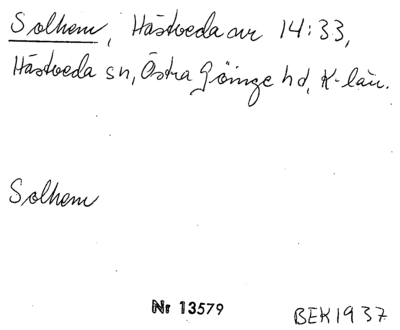 Solhem, Hästveda avr 14:33,
Hästveda sn, Östra Göinge hd, K-län.
Solhem
Nr 13579
BEK1937